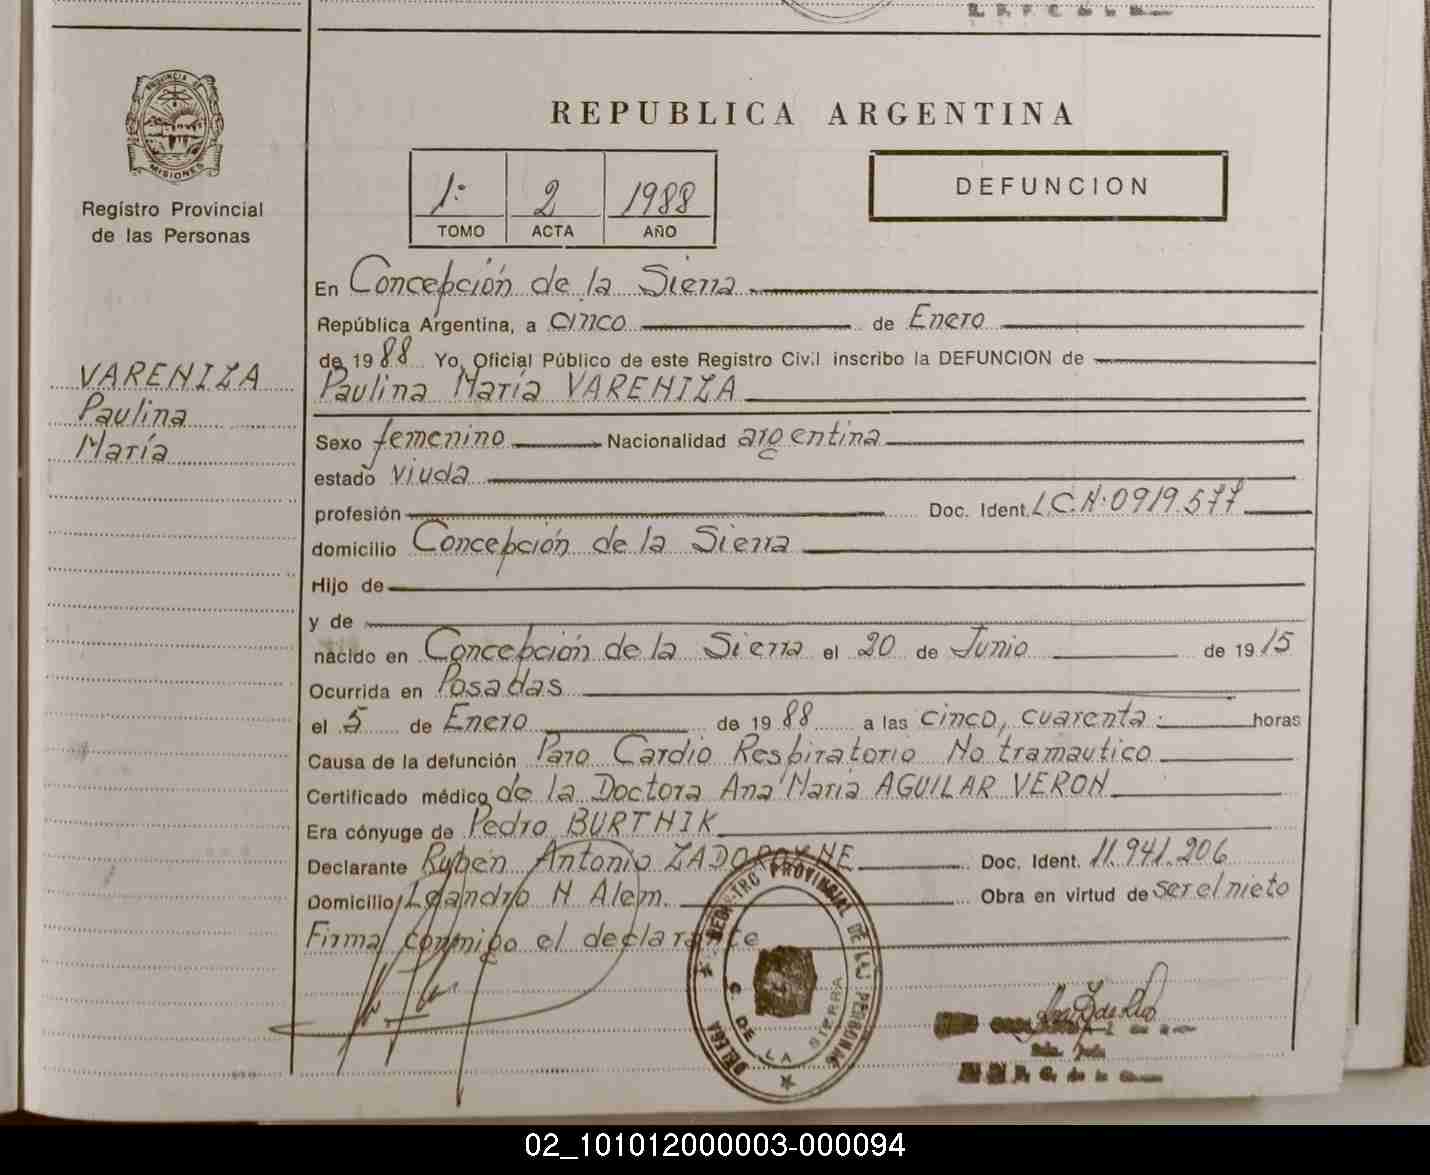 PROVINCIA DE
MISIONES
Registro Provincial
de las Personas
VARENIZA
Paulina
María
REPUBLICA ARGENTINA
1º 2 1988
TOMO ACTA AÑO
DEFUNCION
En Concepción de la Sierra
República Argentina, a cinco de Enero
de 1988 Yo, Oficial Público de este Registro Civil inscribo la DEFUNCION de
Paulina María VARENIZA
Sexo femenino Nacionalidad argentina
estado viuda
profesión Doc. Ident. L.C.N: 0919.577
domicilio Concepción de la Sierra
Hijo de
y de
nacido en Concepción de la Sierra el 20 de Junio de 1915
Ocurrida en Posadas
el 5 de Enero de 1988 a las cinco, cuarenta horas
Causa de la defunción Paro Cardio Respiratorio No tramautico
Certificado médico de la Doctora Ana María AGUILAR VERON
Era cónyuge de Pedro BURTNIK
Declarante Ruben Antonio ZADOROYNE Doc. Ident. 11.941.206
Domicilio Leandro N Alem. Obra en virtud de ser el nieto
Firma conmigo el declarante
REGISTRO PROVINCIAL DE LAS PERSONAS
C. DE LA SIERRA
02_101012000003-000094